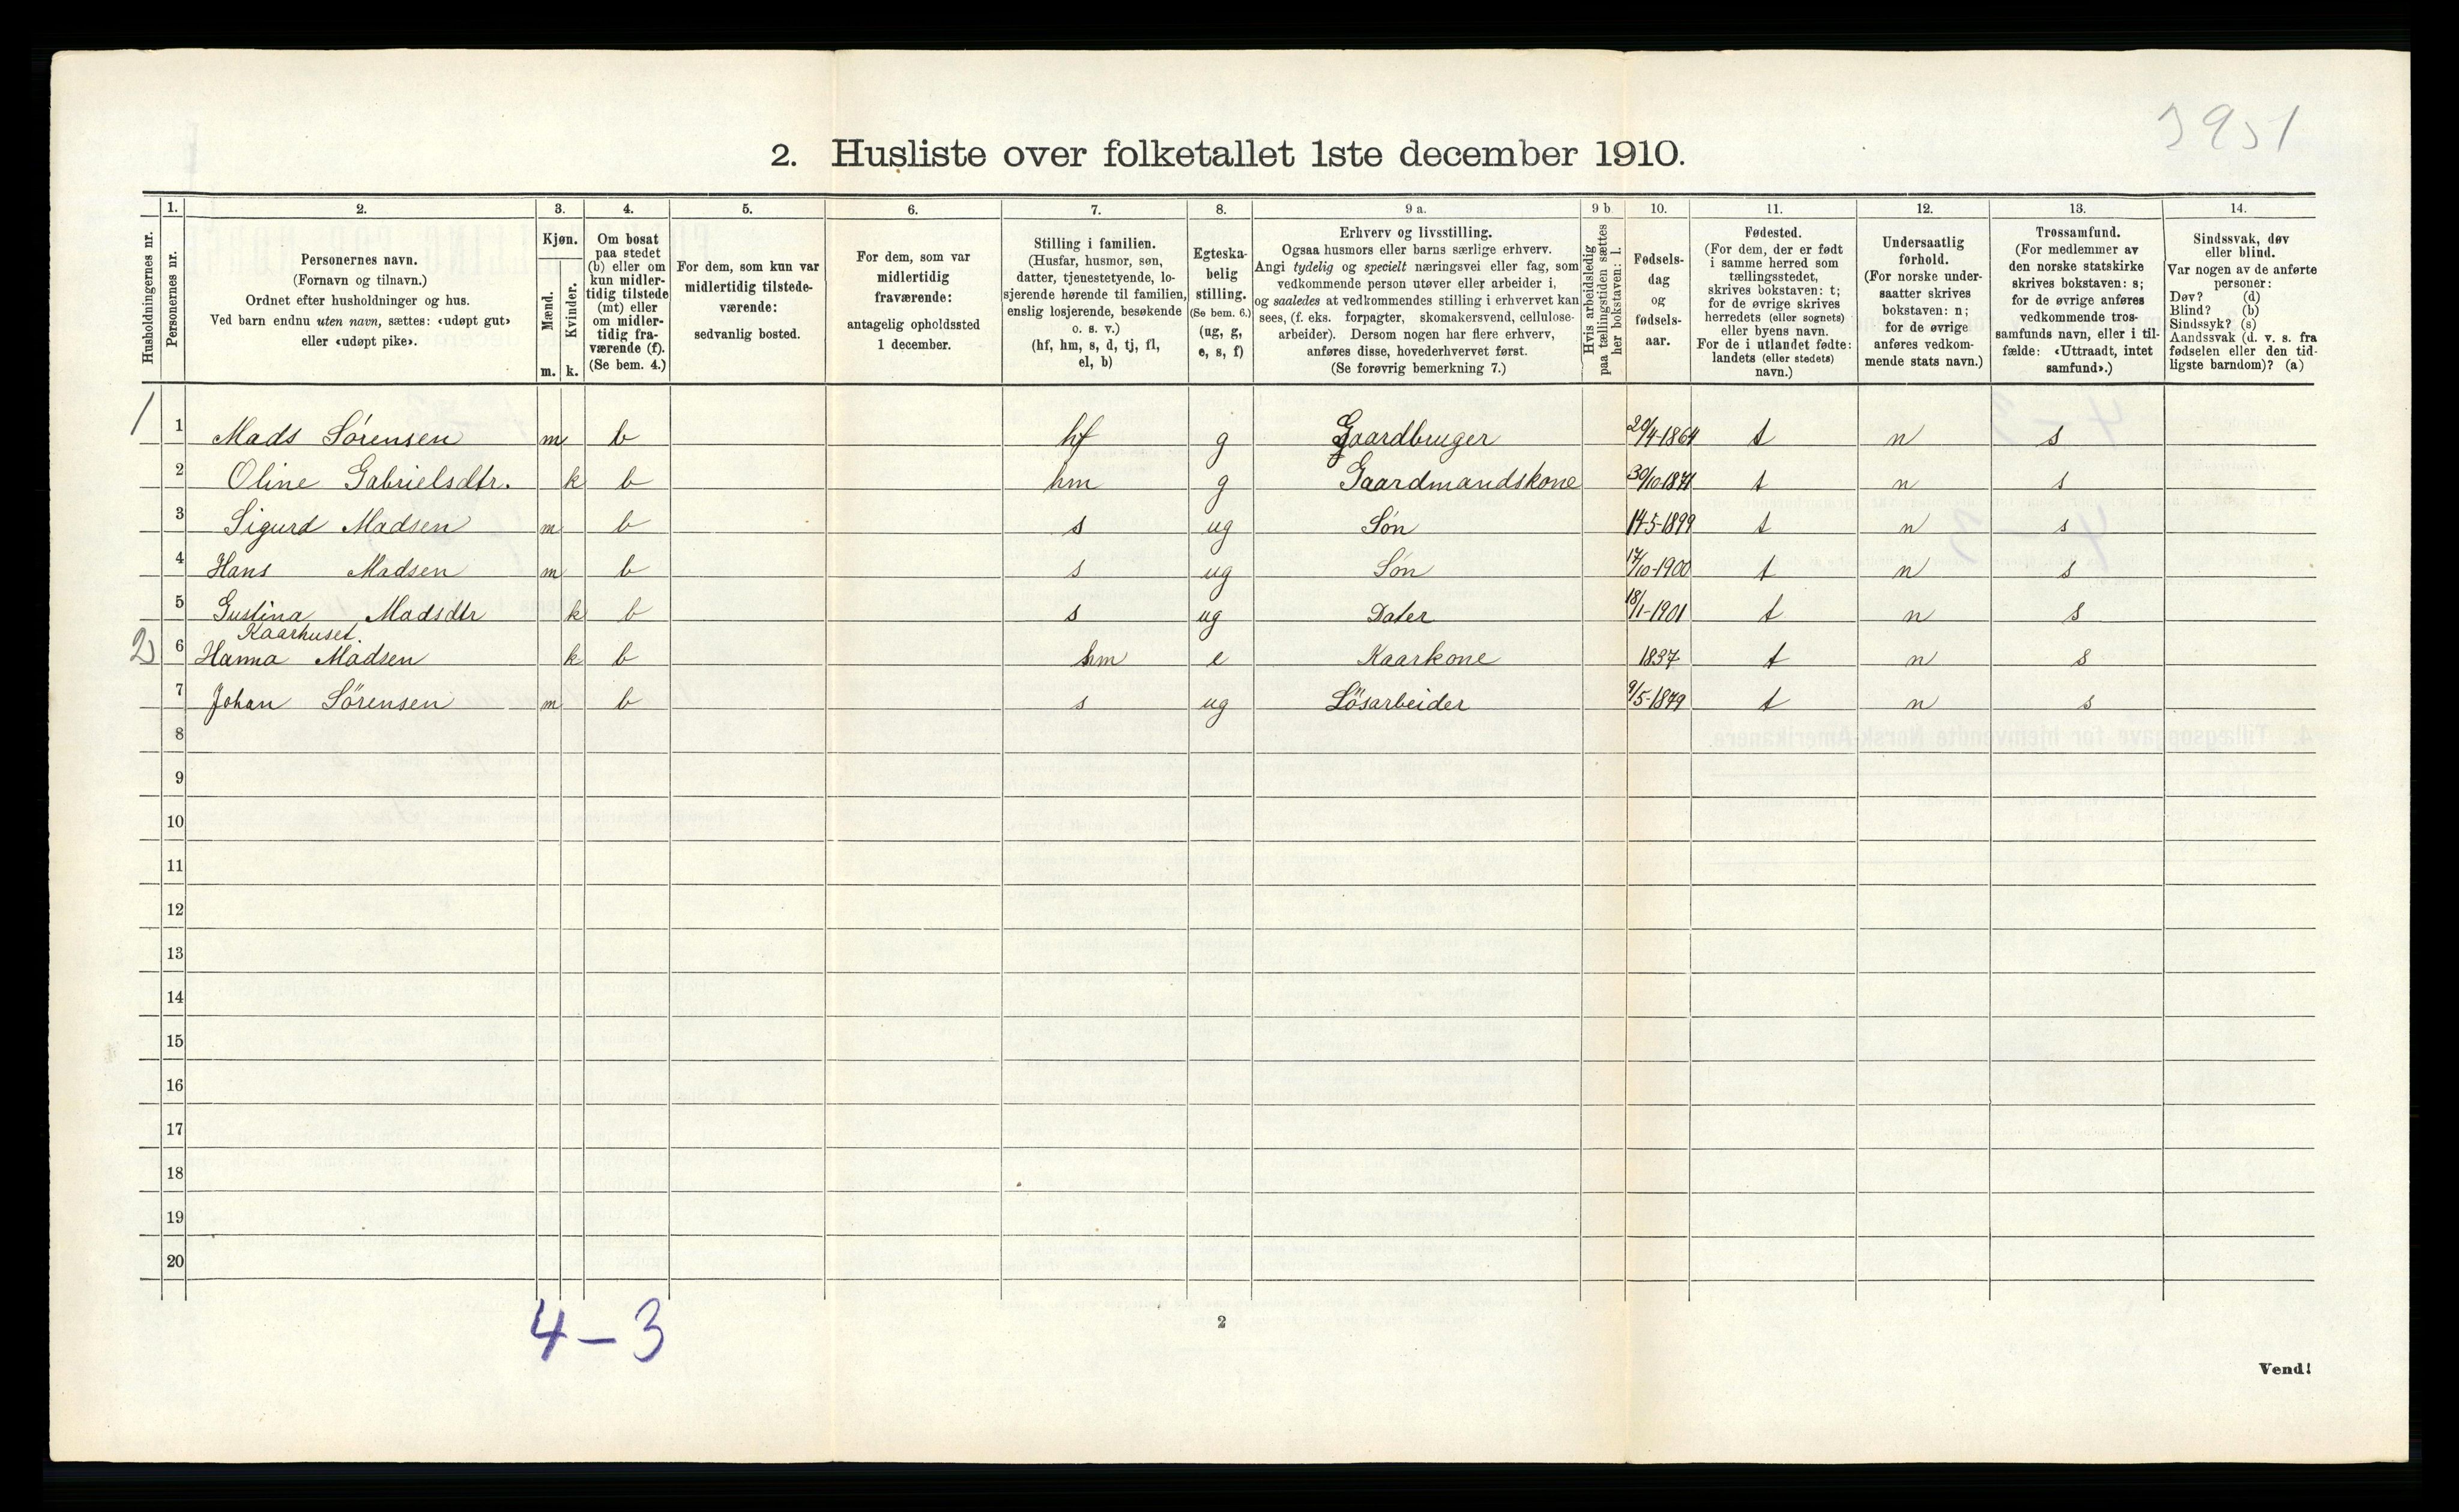 3951
2. Husliste over folketallet 1ste december 1910.
Husholdningernes nr.
1.
Personernes nr.
2.
Personernes navn.
(Fornavn og tilnavn.)
Ordnet efter husholdninger og hus.
Ved barn endnu uten navn, sættes: «udøpt gut»
eller «udøpt pike».
3.
Kjøn.
Mænd.
Kvinder.
m. k.
4.
Om bosat
paa stedet
(b) eller om
kun midler-
tidig tilstede
(mt) eller
om midler-
tidig fra-
værende (f).
(Se bem. 4.)
5.
For dem, som kun var
midlertidig tilstede-
værende:
sedvanlig bosted.
6.
For dem, som var
midlertidig
fraværende:
antagelig opholdssted
1 december.
7.
Stilling i familien.
(Husfar, husmor, søn,
datter, tjenestetyende, lo-
sjerende hørende til familien,
enslig losjerende, besøkende
o. s. v.)
(hf, hm, s, d, tj, fl,
el, b)
8.
Egteska-
belig
stilling.
(Se bem. 6.)
(ug, g,
e, s, f)
9 a.
Erhverv og livsstilling.
Ogsaa husmors eller barns særlige erhverv.
Angi tydelig og specielt næringsvei eller fag, som
vedkommende person utøver eller arbeider i,
og saaledes at vedkommendes stilling i erhvervet kan
sees, (f. eks. forpagter, skomakersvend, cellulose-
arbeider). Dersom nogen har flere erhverv,
anføres disse, hovederhvervet først.
(Se forøvrig bemerkning 7.)
9 b
Hvis arbeidsledig
paa tællingstiden sættes
her bokstaven: l.
10.
Fødsels-
dag
og
fødsels-
aar.
11.
Fødested.
(For dem, der er født
i samme herred som
tællingsstedet,
skrives bokstaven: t;
for de øvrige skrives
herredets (eller sognets)
eller byens navn.
For de i utlandet fødte:
landets (eller stedets)
navn.)
12.
Undersaatlig
forhold.
(For norske under-
saatter skrives
bokstaven: n;
for de øvrige
anføres vedkom-
mende stats navn.)
13.
Trossamfund.
(For medlemmer av
den norske statskirke
skrives bokstaven: s;
for de øvrige anføres
vedkommende tros-
samfunds navn, eller i til-
fælde: «Uttraadt, intet
samfund».)
14.
Sindssvak, døv
eller blind.
Var nogen av de anførte
personer:
Døv? (d)
Blind? (b)
Sindssyk? (s)
Aandssvak (d. v. s. fra
fødselen eller den tid-
ligste barndom)? (a)
1 1 Mads Sørensen m b hf g Gaardbruger 20/4-1864 t n s
2 Oline Gabrielsdtr. k b hm g Gaardmandskone 30/10-1871 t n s
3 Sigurd Madsen m b s ug Søn 14-5-1899 t n s
4 Hans Madsen m b s ug Søn 17/10-1900 t n s
5 Gustina Madsdtr k b s ug Dater 18/1-1901 t n s
Kaarhuset.
2 6 Hanna Madsen k b hm e Kaarkone 1837 t n s
7 Johan Sörensen m b s ug Lösarbeider 9/5-1879 t n s
8
9
10
11
12
13
14
15
16
17
18
19
20
4-3
2
Vend!